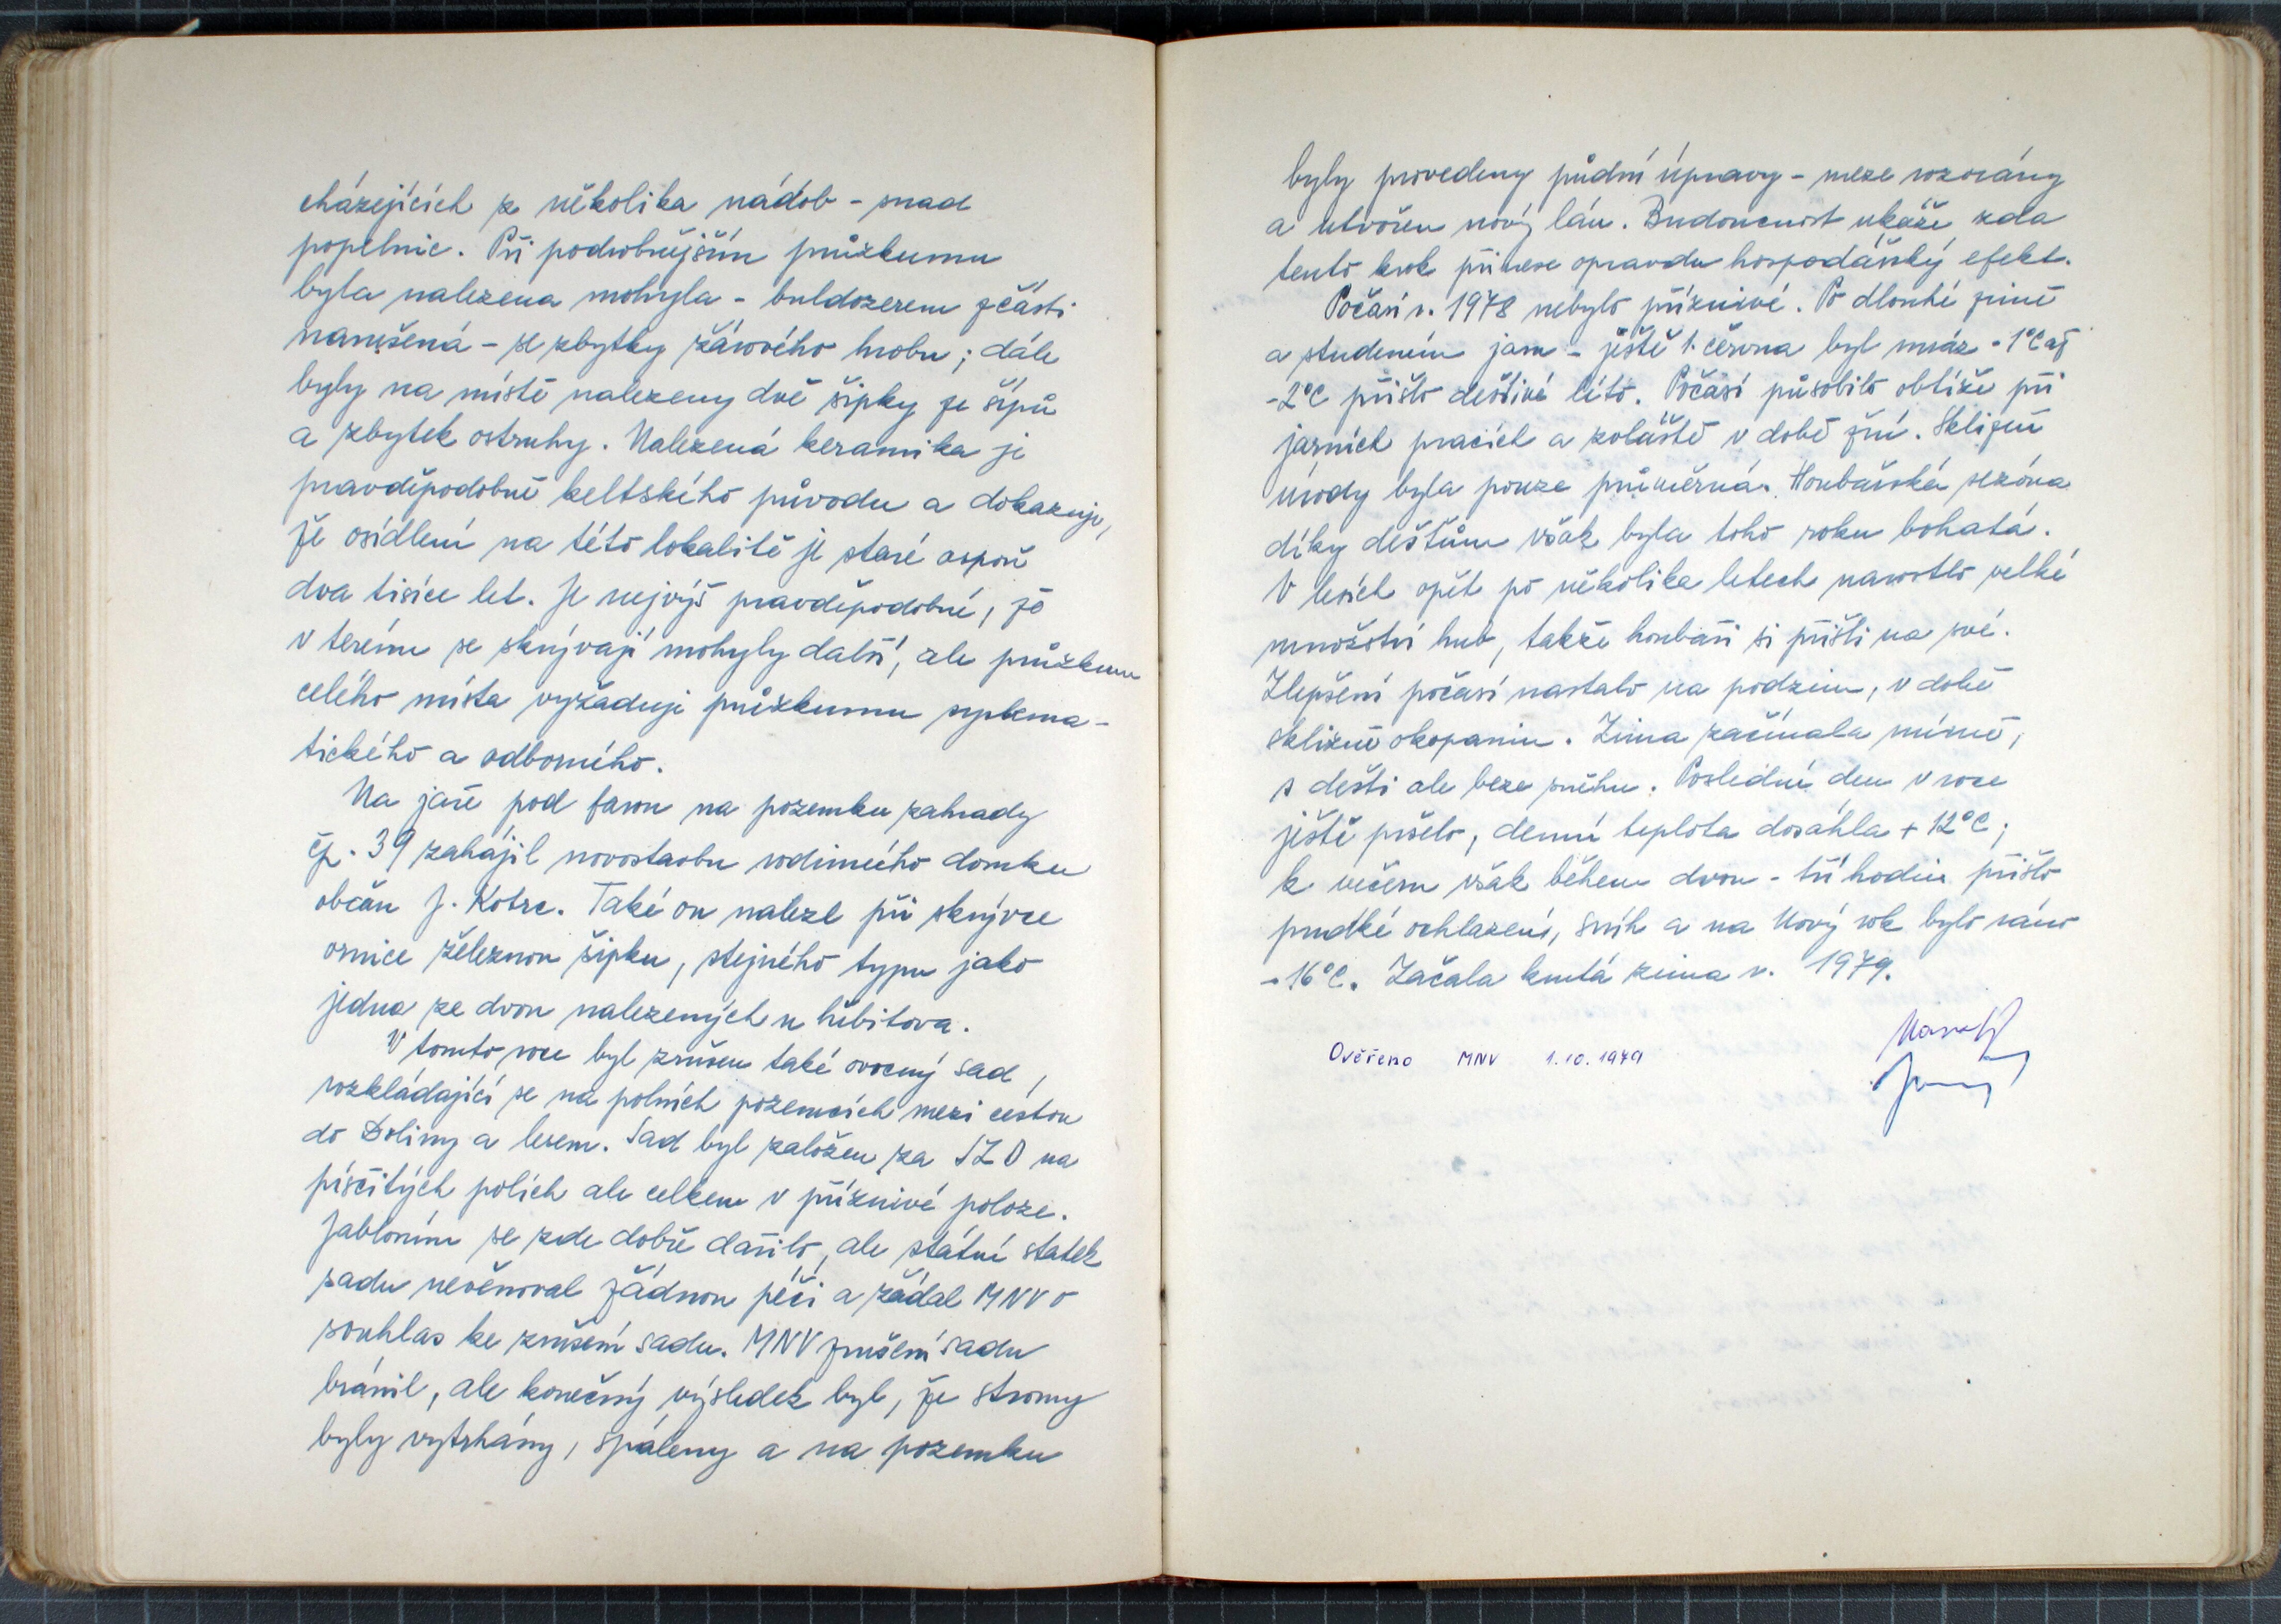 cházejících z několika nádob - snad
popelnic. Při podrobnějším průzkumu
byla nalezena mohyla - buldozerem zčásti
narušená - se zbytky žárového hrobu; dále
byly na místě nalezeny dvě šipky ze šípů
a zbytek ostruhy. Nalezená keramika je
pravděpodobně keltského původu a dokazuje,
že osídlení na této lokalitě je staré aspoň
dva tisíce let. Je nejvýš pravděpodobné, že
v terénu se skrývají mohyly další, ale průzkum
celého místa vyžaduje průzkumu systema-
tického a odborného.
Na jaře pod farou na pozemku zahrady
čp. 39 zahájil novostavbu rodinného domku
občan J. Kotrc. Také on nalezl při skrývce
ornice železnou šipku, stejného typu jako
jedna ze dvou nalezených u hřbitova.
V tomto roce byl zrušen také ovocný sad,
rozkládající se na polních pozemcích mezi cestou
do Doliny a lesem. Sad byl založen za JZD na
písčitých polích ale celkem v příznivé poloze.
Jabloním se zde dobře dařilo, ale státní statek
sadu nevěnoval žádnou péči a žádal MNV o
souhlas ke zrušení sadu. MNV zrušení sadu
bránil, ale konečný výsledek byl, že stromy
byly vytrhány, spáleny a na pozemku
byly provedeny půdní úpravy - meze rozorány
a utvořen nový lán. Budoucnost ukáže zda
tento krok přinese opravdu hospodářský efekt.
Počasí r. 1978 nebylo příznivé. Po dlouhé zimě
a studeném jaru - ještě 1. června byl mráz -1°C až
-2°C přišlo deštivé léto. Počasí působilo obtíže při
jarních pracích a zvláště v době žní. Sklizeň
úrody byla pouze průměrná. Houbařská sezóna
díky dešťům však byla toho roku bohatá.
V lesích opět po několika letech narostlo velké
množství hub, takže houbaři si přišli na své.
Zlepšení počasí nastalo na podzim, v době
sklizně okopanin. Zima začínala mírně,
s dešti ale beze sněhu. Poslední den v roce
ještě pršelo, denní teplota dosáhla + 12°C;
k večeru však během dvou - tří hodin přišlo
prudké ochlazení, sníh a na Nový rok bylo ráno
-16°C. Začala krutá zima r. 1979.
Ověřeno MNV 1.10.1979